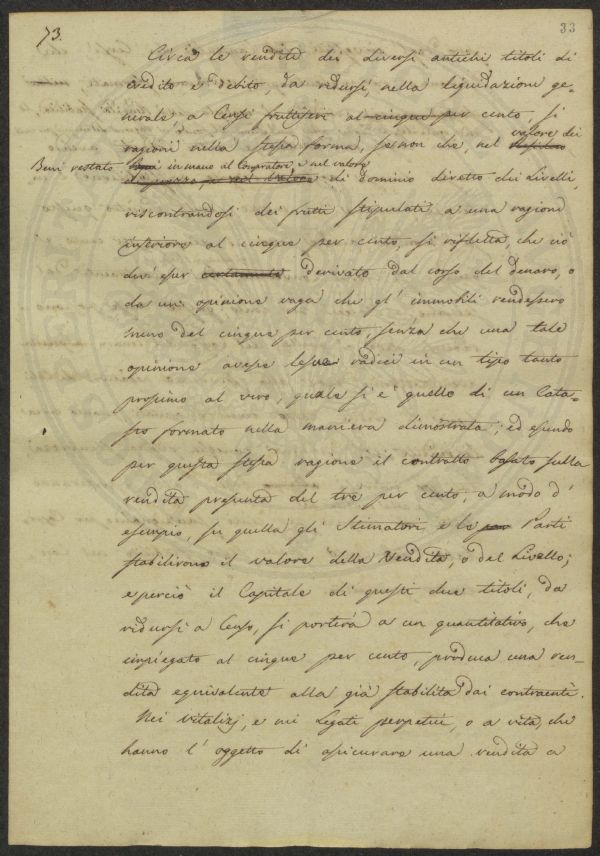 73.
33
Circa le rendite dei diversi antichi titoli di
credito e debito, da ridursi nella liquidazione ge-
nerale, a Censi fruttiferi al cinque per cento, si
ragioni nella stessa forma, se non che, nel valore dei
Beni restato in mano al Compratore, e nel valore
di dominio diretto dei Livelli,
riscontrandosi dei frutti stipulati a una ragione
inferiore al cinque per cento, si rifletta, che ciò
dev' esser certamente derivato dal corso del denaro, o
da un' opinione vaga che gl' immobili rendessero
meno del cinque per cento, senza che una tale
opinione avesse le sue radici in un tipo tanto
prossimo al vero, quale si è quello di un Cata-
sto formato nella maniera dimostrata; ed essendo
per questa stessa ragione il contratto basato sulla
rendita presunta del tre per cento; a modo d'
esempio, su quella gli Stimatori e le Parti
stabilirono il valore della Vendita, o del Livello;
e perciò il Capitale di questi due titoli, da
ridursi a Censo, si porterà a un quantitativo, che
impiegato al cinque per cento, produca una ren-
dita equivalente alla già stabilita dai contraenti.
Nei vitalizj, e nei Legati perpetui, o a vita, che
hanno l' oggetto di assicurare una rendita a